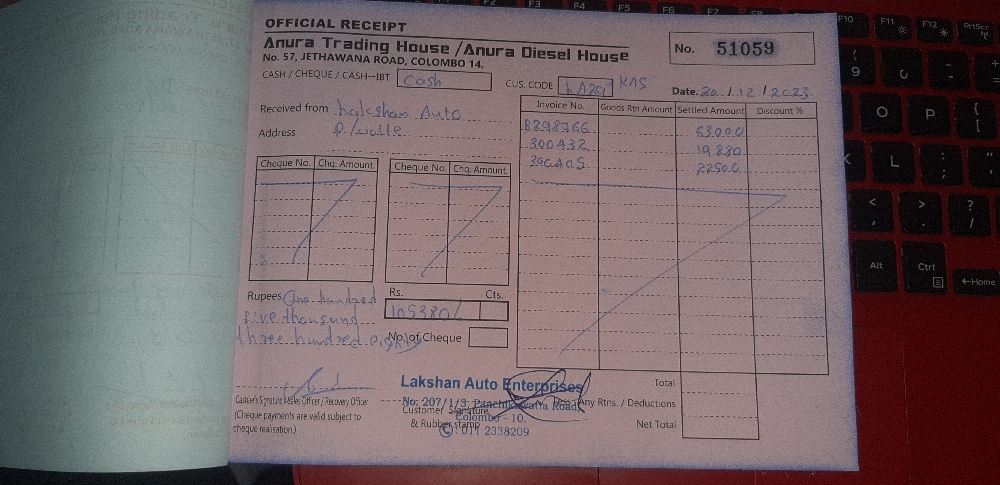 OFFICIAL RECEIPT
Anura Trading House /Anura Diesel House
No. 57, JETHAWANA ROAD, COLOMBO 14.
No. 51059
CASH / CHEQUE / CASH-IBT Cash
CUS. CODE LA29 KAS
Date. 20 / 12 / 2023
Received from Lakshan Auto
Address P/watte
Invoice No. Goods Rtn Amount Settled Amount Discount %
8898766 63000
300432 19.880
300405 22500
Cheque No. Chq. Amount
Cheque No. Chq. Amount
Rupees One hundred
five thousand
three hundred eighty
Rs. Cts.
105380/
No. of Cheque
Cashier's Signature /Sales Officer / Recovery Officer
(Cheque payments are valid subject to
cheque realisation.)
Lakshan Auto Enterprises
No: 207/1/3, Panchikawatta Road,
Colombo - 10.
✆: 011 2338209
Customer Signature
& Rubber stamp
Total
Any Rtns. / Deductions
Net Total
F3
F4
F5
F6
F7
F10
F11
F12
PrtScr
9
O
P
L
Alt
Ctrl
←Home